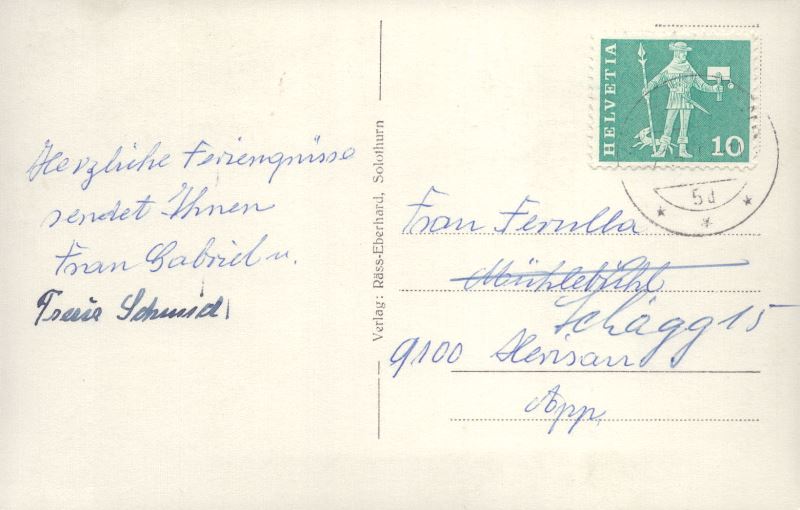 Herzliche Feriengrüsse
sendet Ihnen
Frau Gabriel u.
Schmid
Verlag: Räss-Eberhard, Solothurn
HELVETIA
10
5d
Frau Ferulla
Mühlebühl
Schägg 15
9100 Herisau
App.